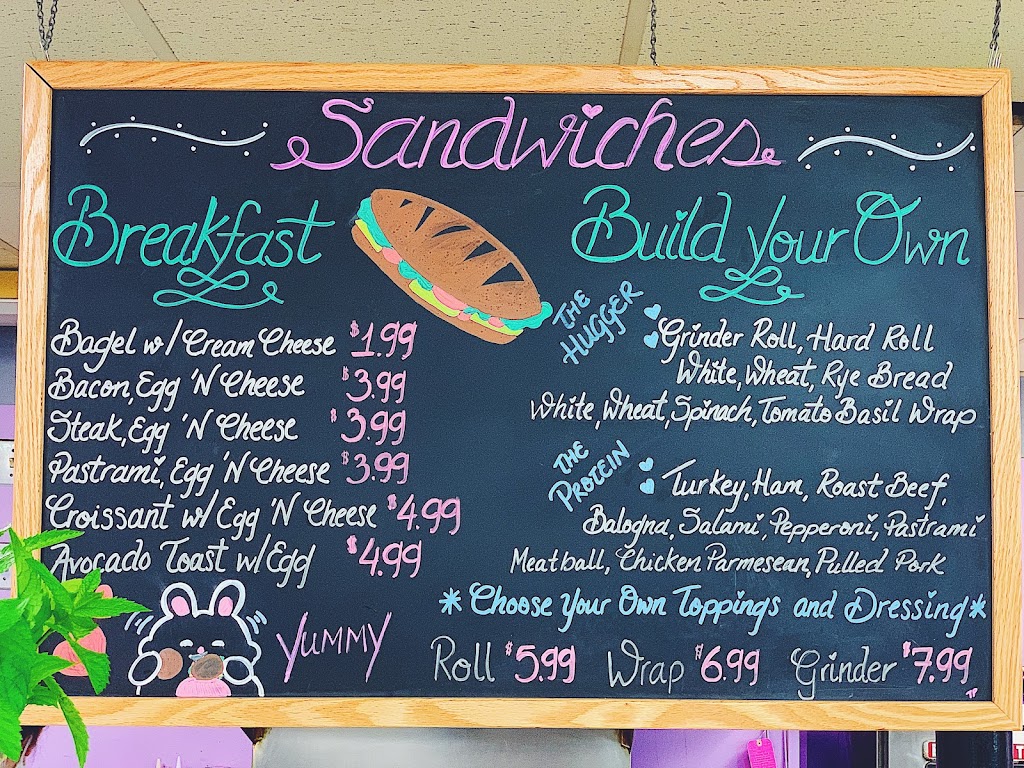 Sandwiches
Breakfast
Bagel w/ Cream Cheese $1.99
Bacon, Egg 'N Cheese $3.99
Steak, Egg 'N Cheese $3.99
Pastrami, Egg 'N Cheese $3.99
Croissant w/ Egg 'N Cheese $4.99
Avocado Toast w/ Egg $4.99
YUMMY
Build your Own
THE
HUGGER
Grinder Roll, Hard Roll
White, Wheat, Rye Bread
White, Wheat, Spinach, Tomato Basil Wrap
THE
PROTEIN
Turkey, Ham, Roast Beef,
Balogna, Salami, Pepperoni, Pastrami
Meatball, Chicken Parmesean, Pulled Pork
*Choose Your Own Toppings and Dressing*
Roll $5.99 Wrap $6.99 Grinder $7.99